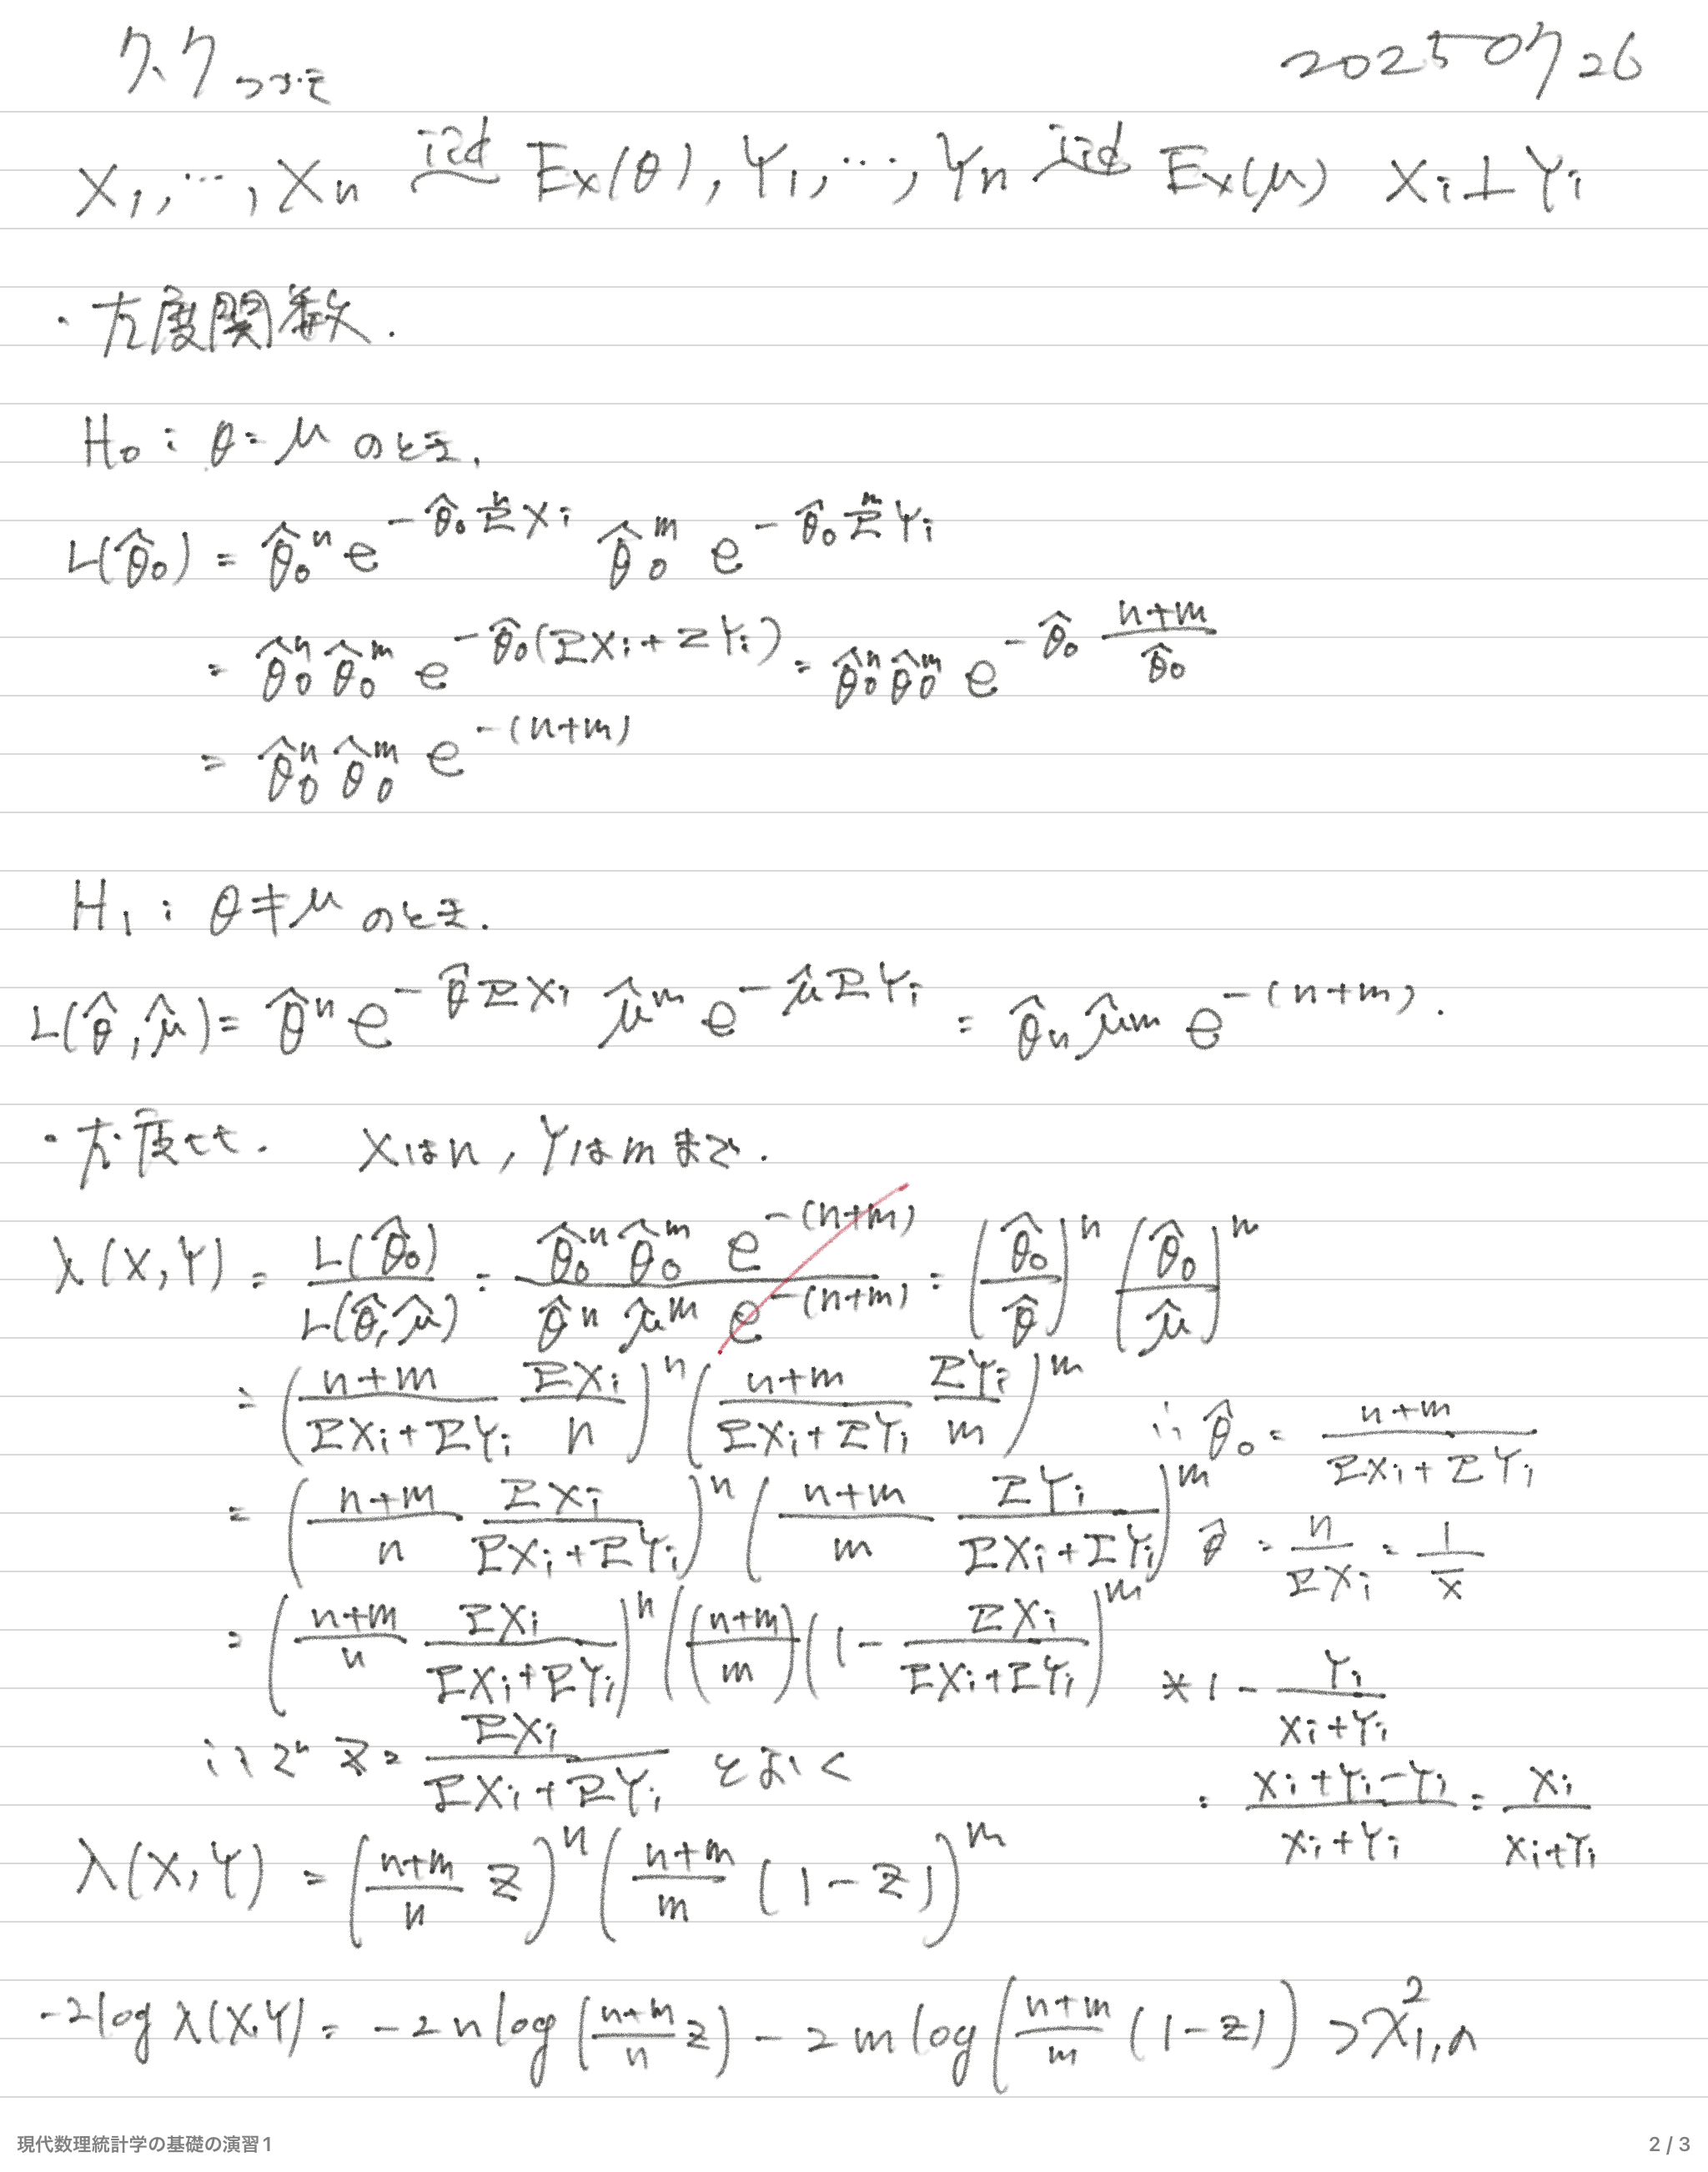 7.7 つづき 20250726
X₁, …, Xₙ iid~ Ex(θ), Y₁, …, Yₙ iid~ Ex(μ) Xᵢ⊥Yᵢ
・尤度関数.
H₀ : θ = μ のとき,
L(θ̂₀) = θ̂₀ⁿ e^{-θ̂₀ Σⁿ Xᵢ} θ̂₀ᵐ e^{-θ̂₀ Σᵐ Yᵢ}
= θ̂₀ⁿ θ̂₀ᵐ e^{-θ̂₀(ΣXᵢ+ΣYᵢ)} = θ̂₀ⁿ θ̂₀ᵐ e^{-θ̂₀ (n+m)/θ̂₀}
= θ̂₀ⁿ θ̂₀ᵐ e^{-(n+m)}
H₁ : θ ≠ μ のとき.
L(θ̂, μ̂) = θ̂ⁿ e^{-θ̂ΣXᵢ} μ̂ᵐ e^{-μ̂ΣYᵢ} = θ̂ₙ μ̂ₘ e^{-(n+m)}.
・尤度比. Xはn, Yはmまで.
λ(X, Y) = L(θ̂₀)/L(θ̂, μ̂) = (θ̂₀ⁿ θ̂₀ᵐ e^{-(n+m)})/(θ̂ⁿ μ̂ᵐ e^{-(n+m)}) = (θ̂₀/θ̂)ⁿ (θ̂₀/μ̂)ᵐ
= ((n+m)/(ΣXᵢ+ΣYᵢ) ΣXᵢ/n)ⁿ ((n+m)/(ΣXᵢ+ΣYᵢ) ΣYᵢ/m)ᵐ ∵ θ̂₀ = (n+m)/(ΣXᵢ+ΣYᵢ)
= ((n+m)/n ΣXᵢ/(ΣXᵢ+ΣYᵢ))ⁿ ((n+m)/m ΣYᵢ/(ΣXᵢ+ΣYᵢ))ᵐ θ̂ = n/ΣXᵢ = 1/x̄
= ((n+m)/n ΣXᵢ/(ΣXᵢ+ΣYᵢ))ⁿ (((n+m)/m)(1 - ΣXᵢ/(ΣXᵢ+ΣYᵢ))ᵐ ※ 1 - Yᵢ/(Xᵢ+Yᵢ)
ここで Z = ΣXᵢ/(ΣXᵢ+ΣYᵢ) とおく = (Xᵢ+Yᵢ-Yᵢ)/(Xᵢ+Yᵢ) = Xᵢ/(Xᵢ+Yᵢ)
λ(X, Y) = ((n+m)/n Z)ⁿ ((n+m)/m (1-Z))ᵐ
-2log λ(X,Y) = -2n log((n+m)/n Z) - 2m log((n+m)/m (1-Z)) > χ²₁,α
現代数理統計学の基礎の演習1 2 / 3